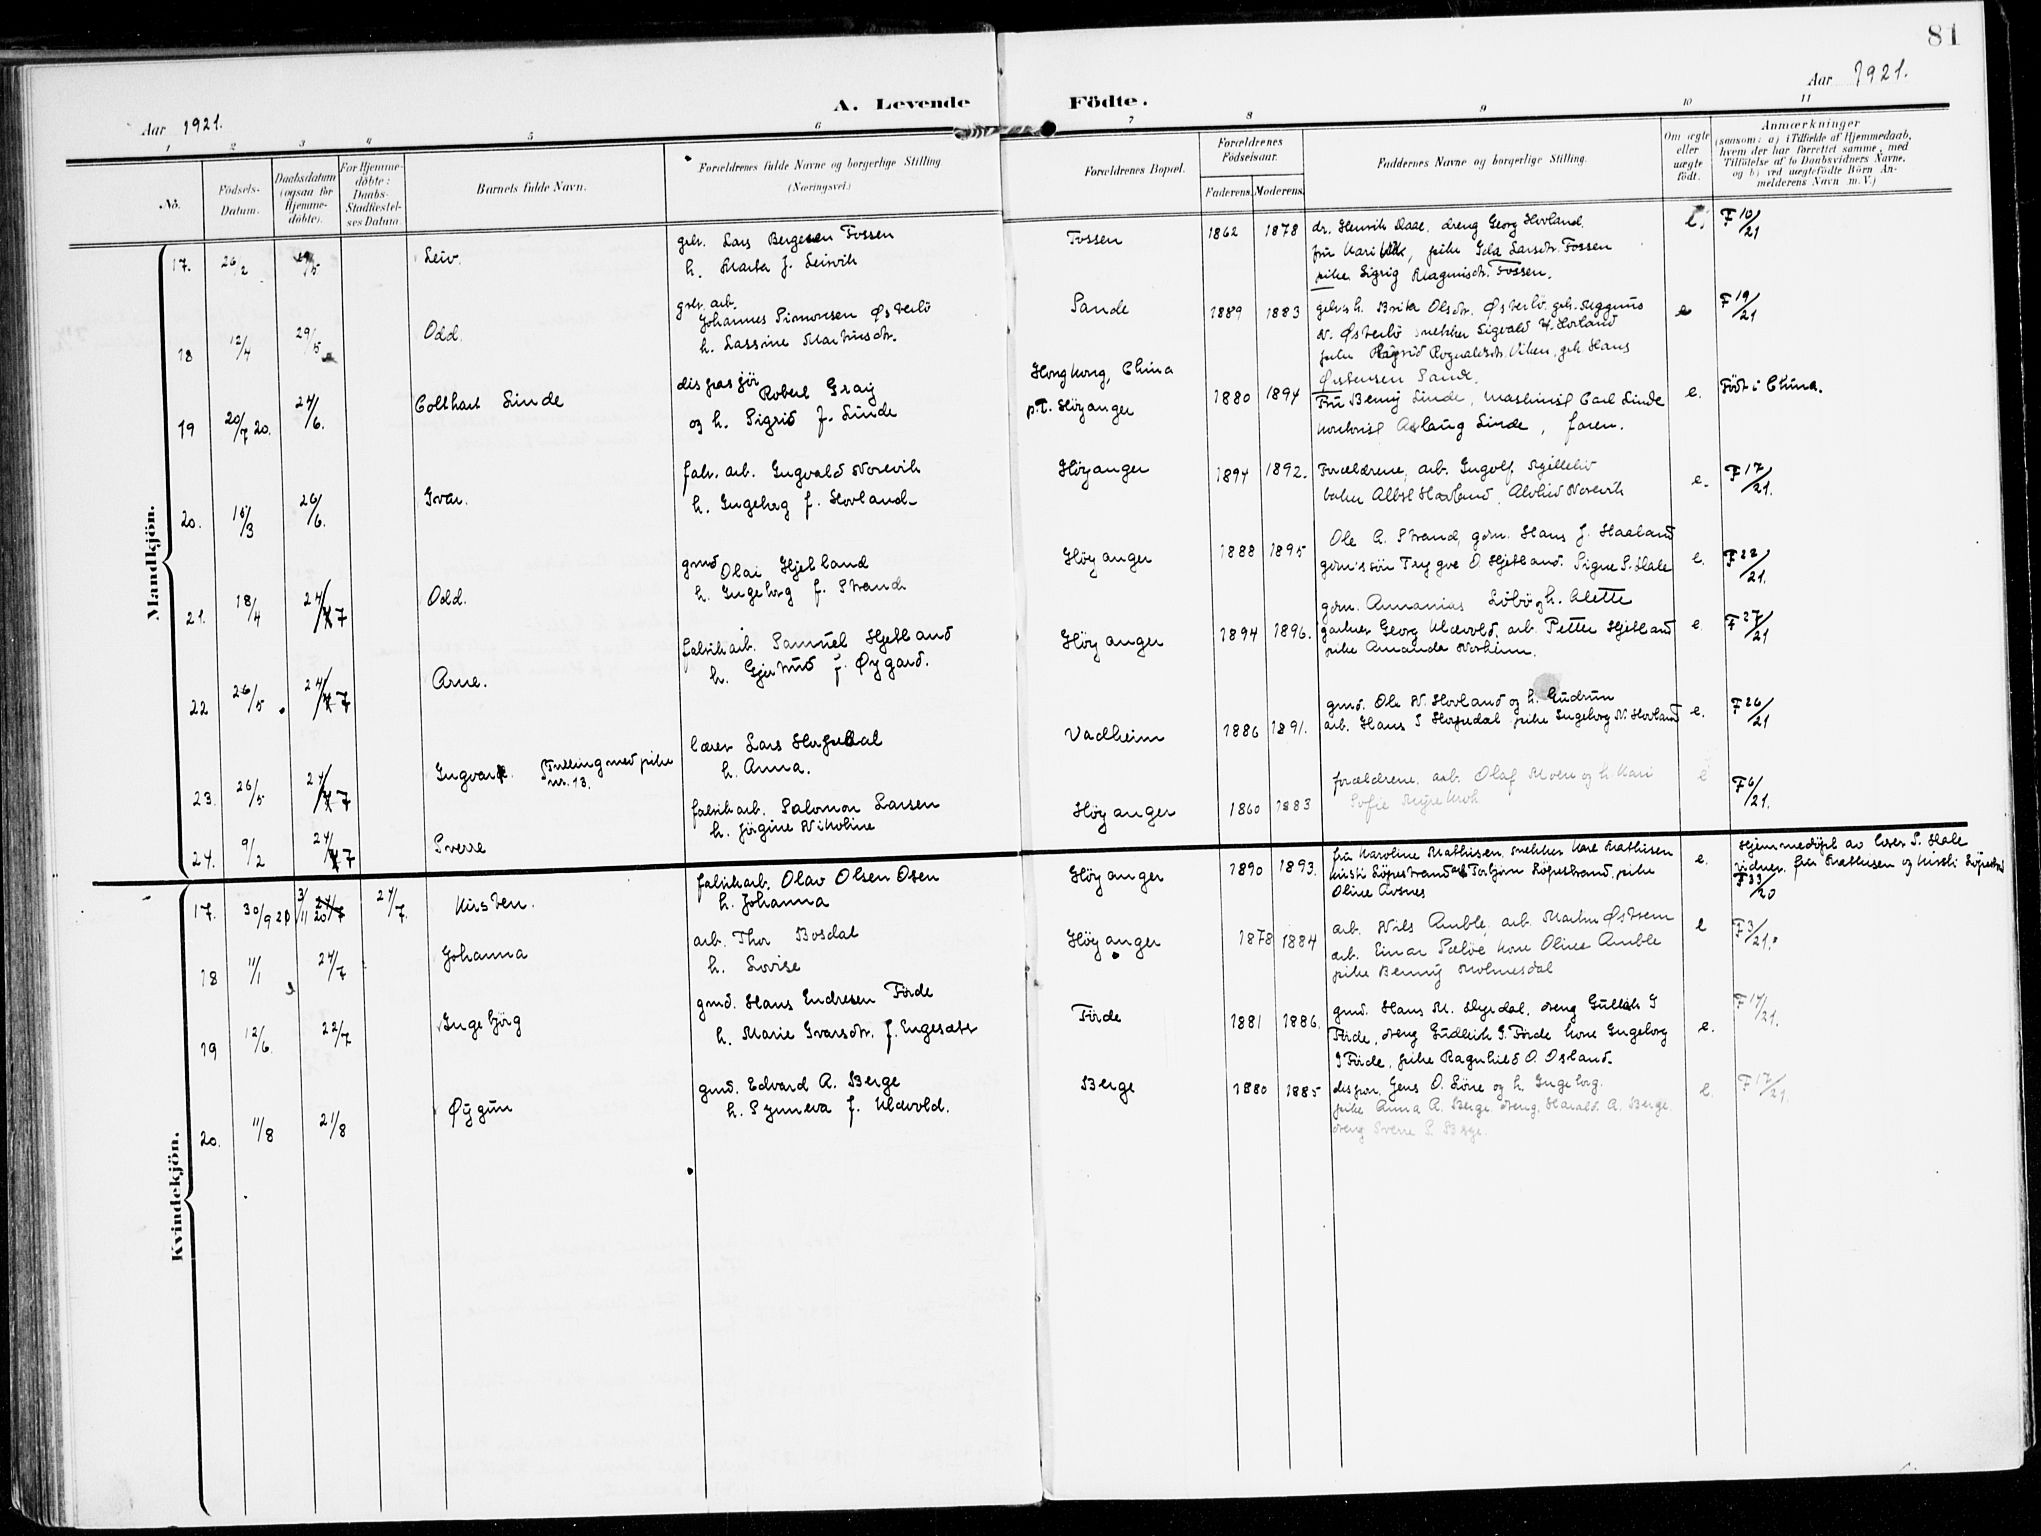 81
Aar 1921.
A. Levende Födte.
Aar 1921.
1 2 3 4 5 6 7 8 9 10 11
Nö.
Födsels-Datum.
Daabsdatum (ogsaa for Hjemmedöbte).
For Hjemmedöbte: Daabs-Stadfæstelses Datum.
Barnets fulde Navn.
Forældrenes fulde Navne og borgerlige Stilling (Næringsvei.)
Forældrenes Bopæl.
Forældrenes Födselsaar.
Faderens. Moderens.
Faddernes Navne og borgerlige Stilling.
Om ægte eller uægte födt.
Anmærkninger (saasom: a) i Tilfælde af Hjemmedaab, hvem der har forrettet samme, med Tilföielse af to Daabsvidners Navne, og b) ved uægtefödte Börn Anmelderens Navn m. V.)
Mandkjön.
17. 26/2 Leiv.
gbr. Lars Bergesen Fossen
h. Marta f. Leirvik
Fossen 1862 1878
dr. Henrik Daae, dreng Georg Hovland.
fru Kari, pike Gda Larsdtr. Fossen
pike Sigrig Magnusdtr. Fossen.
F 10/21
18 12/4 29/5 Odd.
gbr. arb.
Johannes Simonsen Østerbö
h. Lassine Martinusdtr.
Sande 1889 1883
Brita Olsdtr. Østerbö, gbr.
N. Østerbö snekker Sigvald Hovland
pike Rognaldsdtr. Viken, gbr. Hans
Østensen Sande.
e F 19/21
19 20/7 20. 24/6. Colthart Linde
disponsjör Robert Graig
og h. Sigrid f. Linde
Hong Kong, China
p.t. Höyanger
1880 1894
Fru Benny Linde, maskinist Carl Linde
kontorist Aslaug Linde, faren.
e. Födt i China.
20. 15/3 26/6. Ivar.
fabr. arb. Ingvald Norevik
h. Ingeborg f. Hovland
Höyanger 1894 1892.
Forældrene, arb. Ingolf
baker Albst Hovland, Alvhild Norevik
e. F 17/21.
21. 18/4 24/7 Odd.
gmd Olai Hjetland
h. Ingeborg f. Strand
Höyanger 1888 1895
Ole A. Strand, gdm. Hans J. Haaland
gdm's sön Trygve O Hjetland. Signe S. Hale
e. F 22/21.
22 26/5. 24/7 Arne.
fabrikarb. Samuel Hjetland
h. Gjertrud f. Øygard.
Höyanger 1894 1896.
gdm. Annanias Löbö og h. Alette
gartner Georg Ulvevold, arb. Petter Hjetland
pike Amanda Norheim.
e. F 27/21
23. 26/5 24/7 Ingvar. Tvilling med pike nr. 13.
lærer Lars Husedal
h. Anna.
Vadheim 1886 1891.
gmd. Ole N. Hovland og h. Gudrun
arb. Hans S Husedal, pike Ingeborg N. Hovland
e. F 26/21
24. 9/2 24/7 Sverre
fabrikarb. Salomon Larsen
h. Jörgine Nikoline
Höyanger 1860 1883
forældrene, arb. Olaf Moen og h. Kari
Sofie
e F 6/21.
Kvindekjön.
17. 30/9 20 3/11 20 24/7. Kirsten.
fabrikarb. Olav Olsen Osen
h. Johanna
Höyanger 1890 1893.
fru Karoline Mathisen, snekker Karl Mathisen
Kirsti Löpestrand, Torbjörn Löpestrand, pike
Oline Avsnes
e. Hjemmedöpt av lærer S. Hale
vidner: fru Mathisen og Kirsti Löpestrand
F 33/20
18 11/1 24/7 Johanna
arb. Thor Bosdal
h. Lovise
Höyanger 1878 1884
arb. Nils Amble, arb. Martin Østrem
arb. Einar Sælöe kone Oline Amble
pike Benny Holmesdal
e F 3/21.
19 12/6. 22/7 Ingebjörg
gmd. Hans Endresen Förde
h. Marie Ivarsdtr. f. Engesæter
Förde 1881 1886.
gmd. Hans M. Myrdal, dreng Gullik I
Förde, dreng Gudleik I. Förde kone Ingeborg
I Förde, pike Ragnhild O. Osland.
e. F 14/21.
20. 11/8 21/8 Øygun
gmd. Edvard A. Berge
h. Synneva f. Ulvevold.
Berge 1880 1885
dispon. Jens O. Löne og h. Ingeborg.
pike Anna A. Berge dreng. Harald A. Berge
dreng Sverre S. Berge.
e. F 17/21.